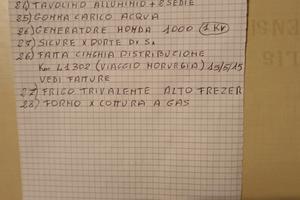 24) TAVOLINO ALLUMINIO + 2 SEDIE
25) GOMMA CARICO ACQUA
26) GENERATORE HONDA 1000 (1KV)
27) SICURE X PORTE DI S
28) FATTA CINGHIA DISTRIBUZIONE
KM 41302 (VIAGGIO NORVEGIA) 15/5/15
VEDI FATTURE
27) FRIGO TRIVALENTE ALTO FREZER
28) FORNO X COTTURA A GAS